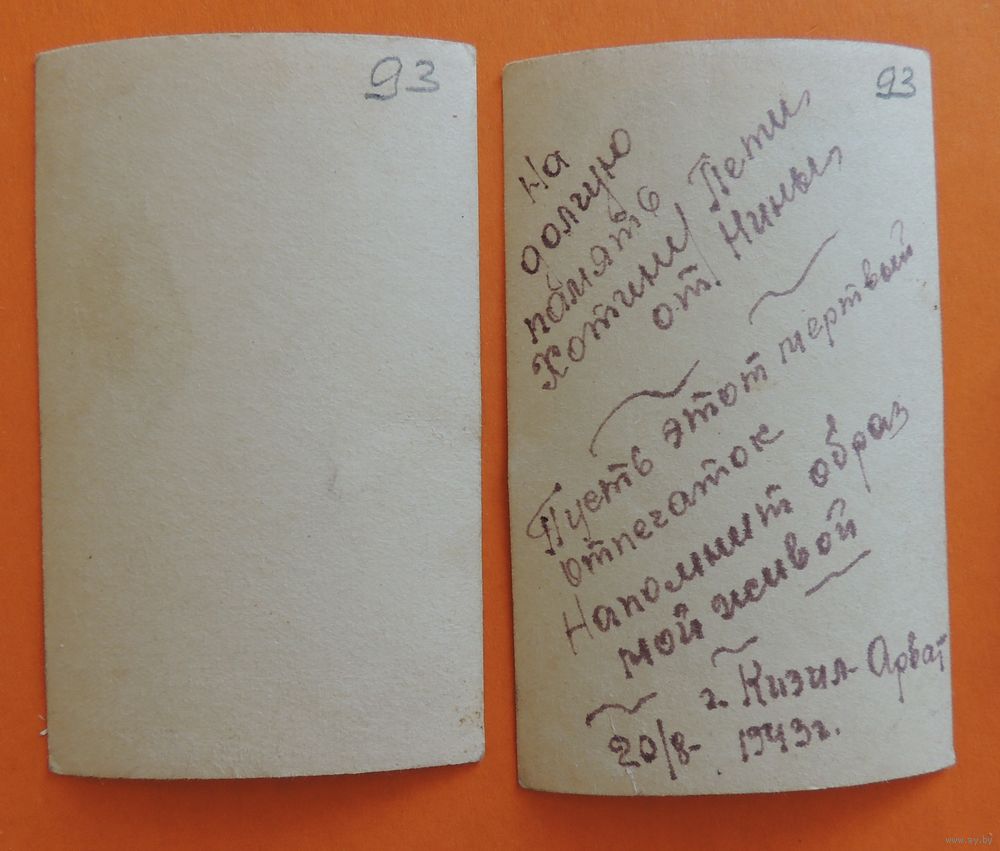 93
93
На
долгую
память
Хотини/Пети,
от. Нины,
Пусть этот мертвый
отпечаток
Напомнит образ
мой живой
г. Кизил-Арват
20/8- 1943г.
www.ay.by